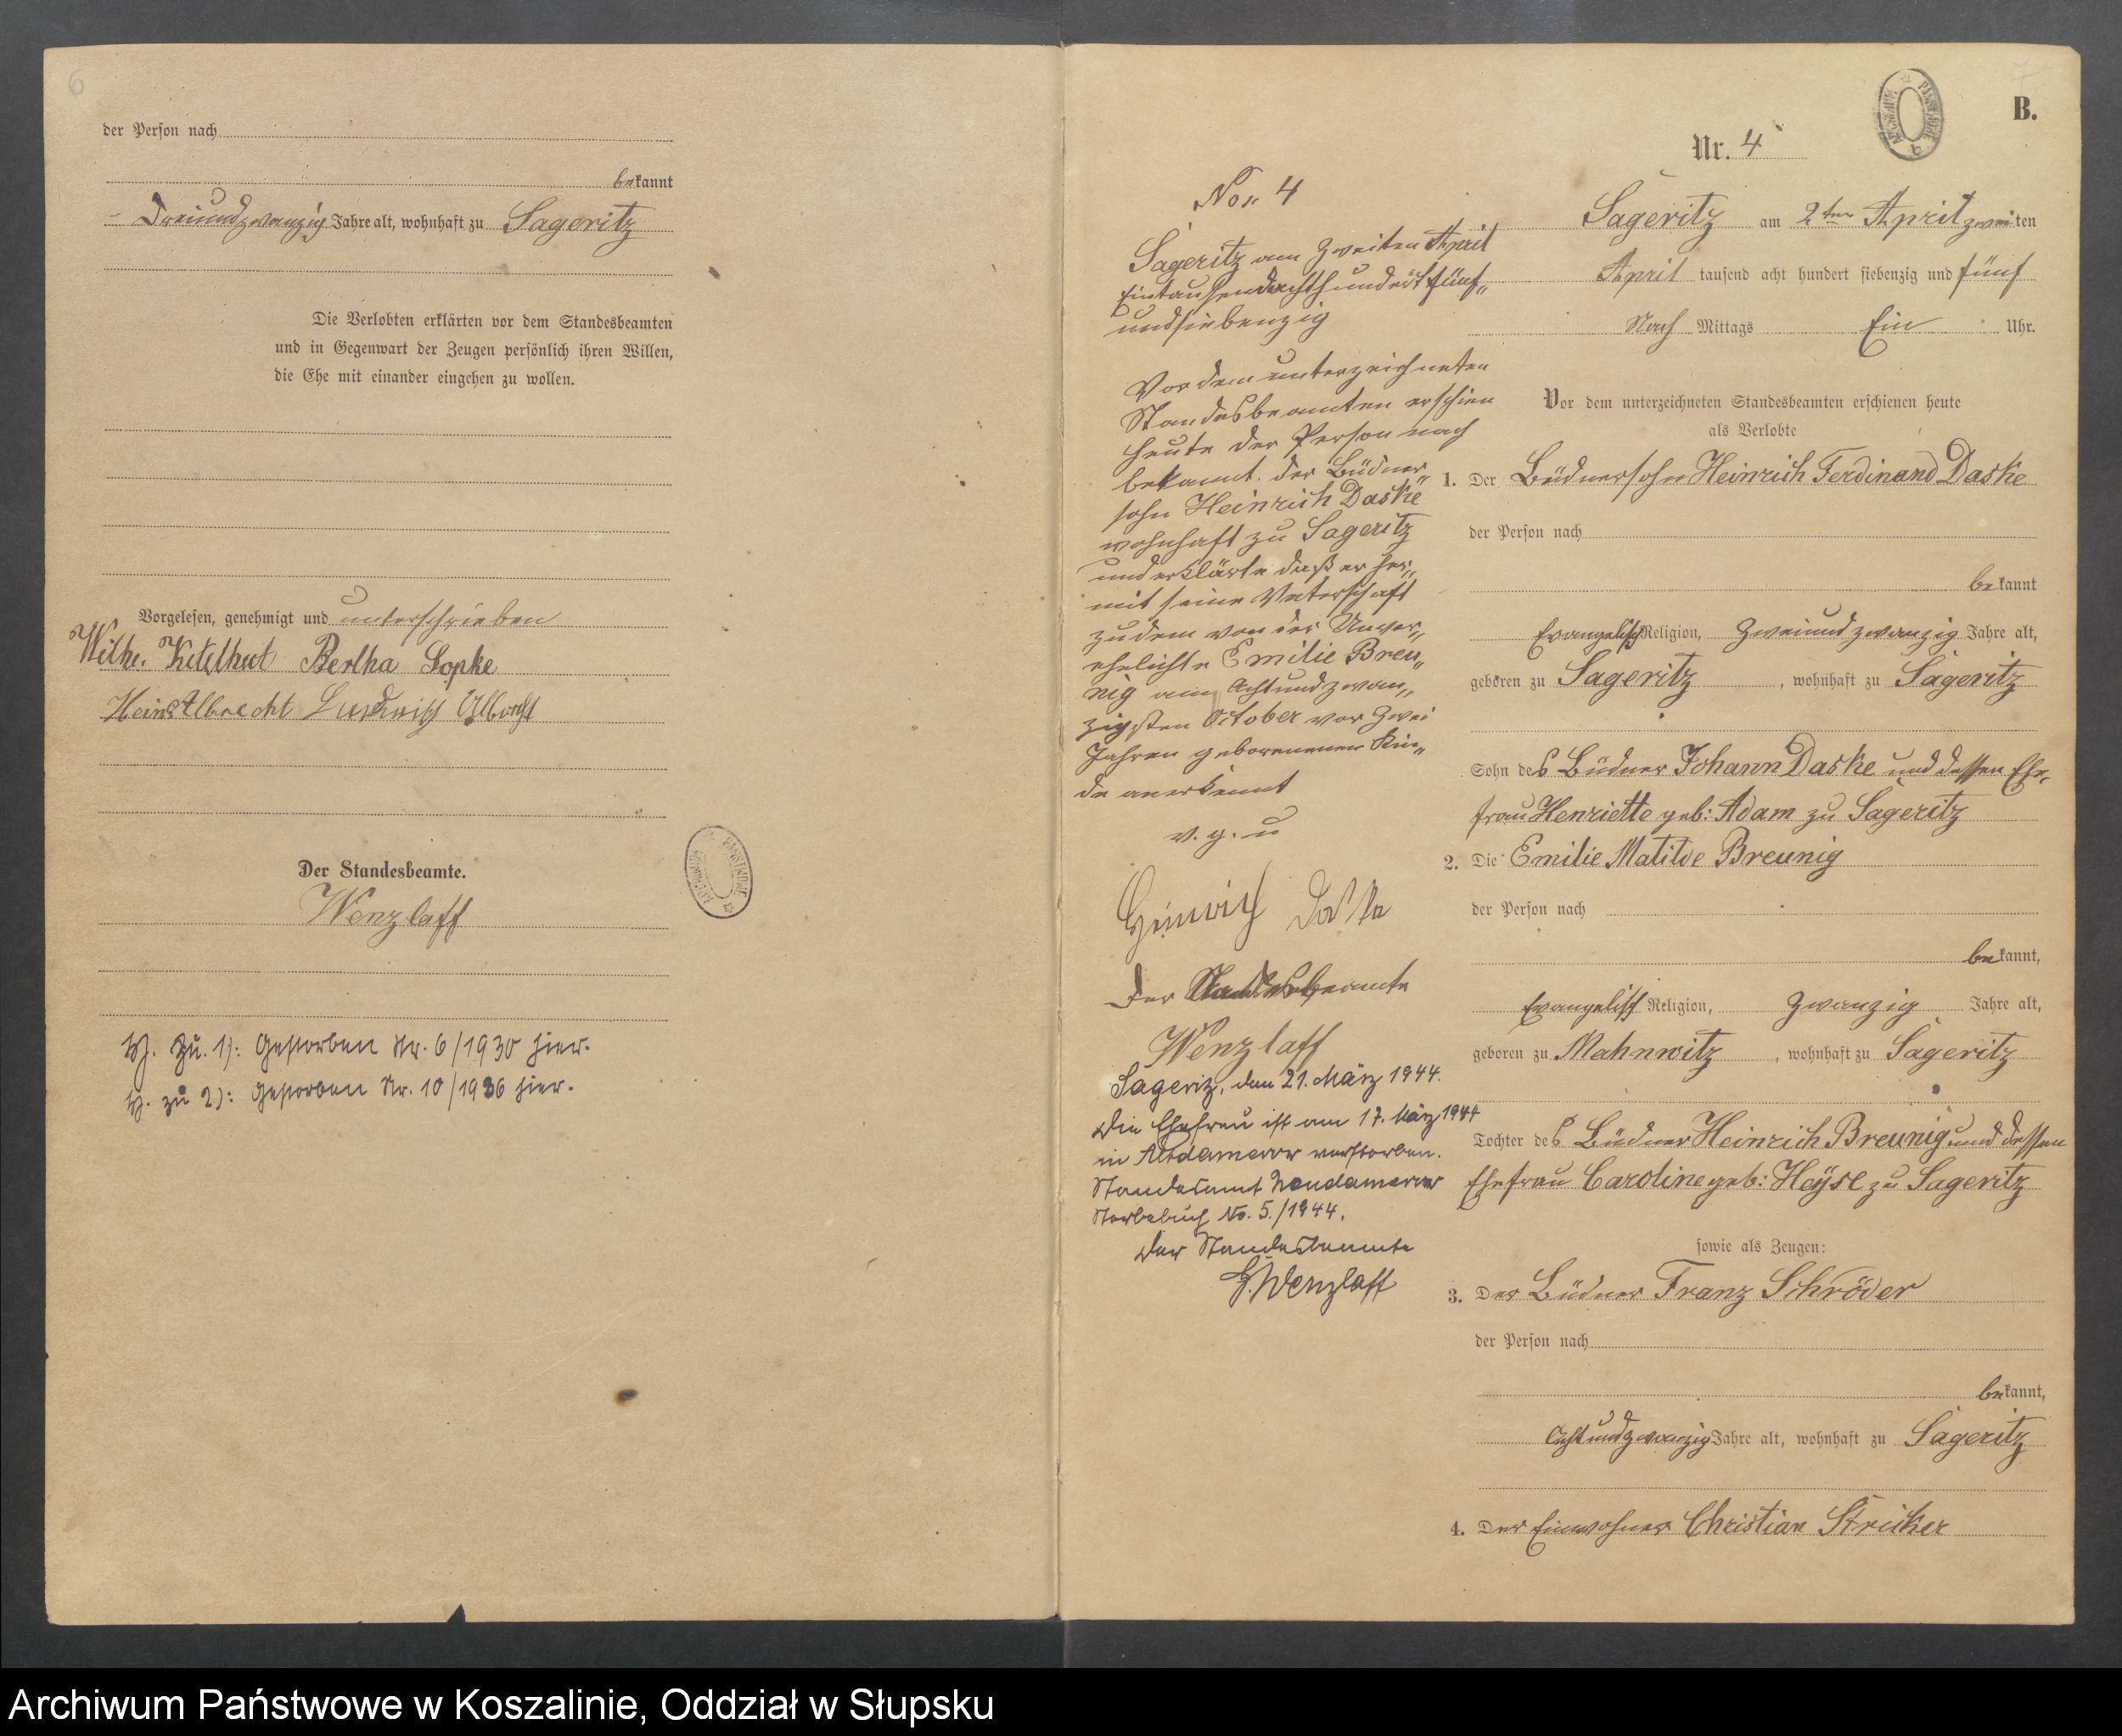 6
der Person nach
bekannt
Dreiundzwanzig Jahre alt, wohnhaft zu Sageritz
Die Verlobten erklärten vor dem Standesbeamten
und in Gegenwart der Zeugen persönlich ihren Willen,
die Ehe mit einander eingehen zu wollen.
Vorgelesen, genehmigt und unterschrieben
Wilhe. Ketelhut Bertha Lopke
Heinr Albrecht Ludwig Albrecht
Der Standesbeamte.
Wenzlaff
H. zu. 1): Gestorben Nr. 6/1930 hier.
H. zu 2): Gestorben Nr. 10/1936 hier.
7
B.
Nr. 4
No. 4
Sageritz am Zweiten April
Eintausendachthundertfünf„
undsiebenzig
Vor dem unterzeichneten
Standesbeamten erschien
heute der Person nach
bekannt. der Büdner„
sohn Heinrich Daske
wohnhaft zu Sageritz
und erklärte daß er hier„
mit seine Vaterschaft
zu dem von der Unver„
ehelichte Emilie Breu„
nig am Achtundzwan„
zigsten October vor Zwei
Jahren geborenenen Kin„
de anerkennt
v. g. u
Heinrich Daske
Der Standesbeamte
Wenzlaff
Sageritz, den 21. März 1944.
Die Ehefrau ist am 17. März 1944
in Altdamerow verstorben.
Standesamt Neudamerow
Sterbebuch No. 5./1944.
Der Standesbeamte
G. Wenzlaff
Sageritz am 2ten April zweiten
April tausend acht hundert siebenzig und fünf
Nach Mittags Ein Uhr.
Vor dem unterzeichneten Standesbeamten erschienen heute
als Verlobte
1. Der Büdnersohn Heinrich Ferdinand Daske
der Person nach
bekannt
Evangelisch Religion, Zweiundzwanzig Jahre alt,
geboren zu Sageritz, wohnhaft zu Sageritz
Sohn des Büdner Johann Daske und dessen Ehe„
frau Henriette geb: Adam zu Sageritz
2. Die Emilie Matilde Breunig
der Person nach
bekannt,
Evangelisch Religion, Zwanzig Jahre alt,
geboren zu Mahnwitz, wohnhaft zu Sageritz
Tochter des Büdner Heinrich Breunig und dessen
Ehefrau Caroline geb: Heyse zu Sageritz
sowie als Zeugen:
3. Der Büdner Franz Schröder
der Person nach
bekannt,
Achtundzwanzig Jahre alt, wohnhaft zu Sageritz
4. Der Einwohner Christian Striker
Archiwum Państwowe w Koszalinie, Oddział w Słupsku